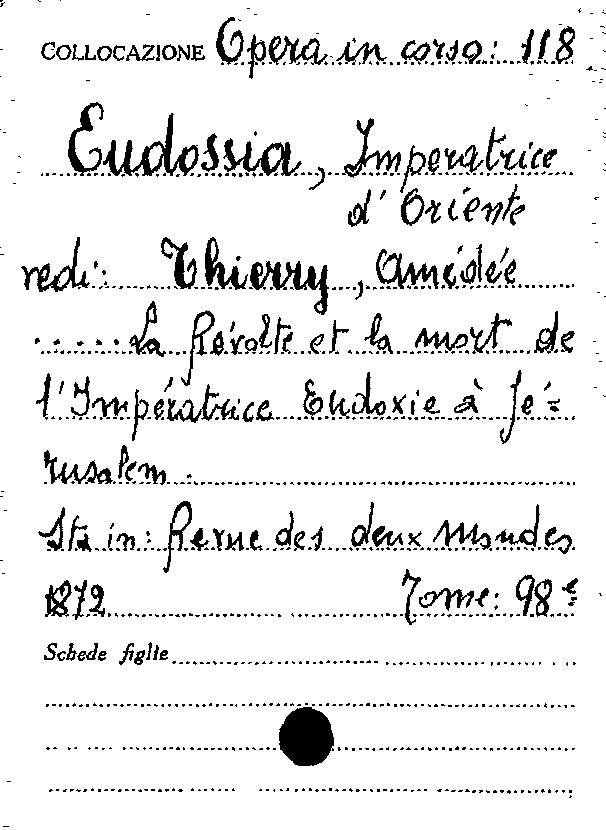 COLLOCAZIONE Opera in corso: 118
Eudossia, Imperatrice
d'Oriente
vedi: Thierry, Amédée
.....La Révolte et la mort de
l'Impératrice Eudoxie à Jé=
rusalem.
Sta in: Revue des deux Mondes
1872 Tome: 98e
Schede figlie